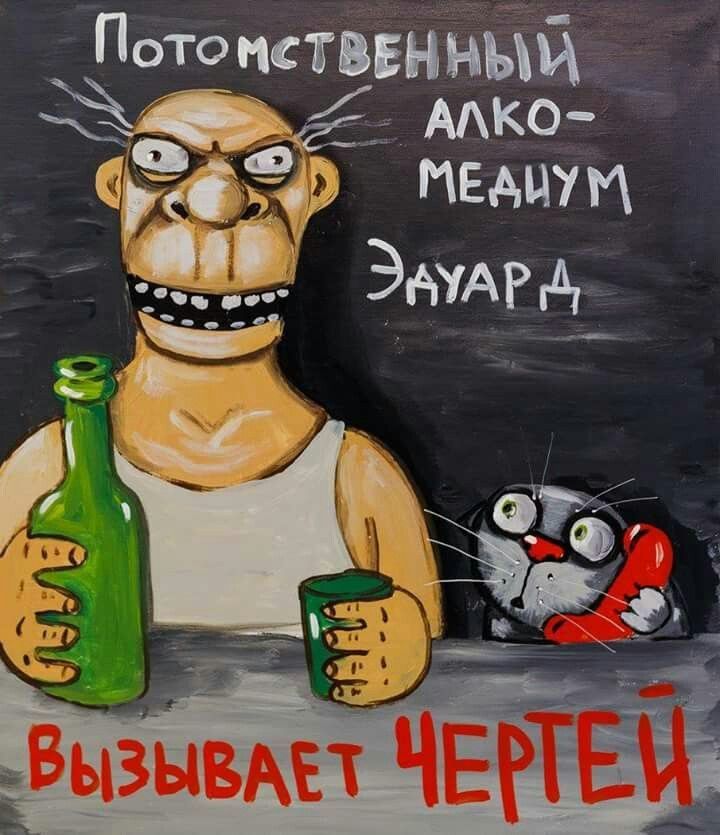 Потомственный
алко-
медиум
Эдуард
Вызывает чертей